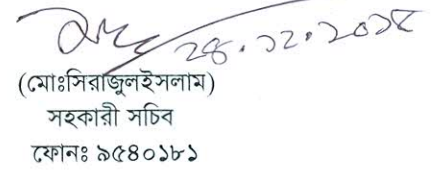 ২৪.১২.২০১৫
(মোঃসিরাজুলইসলাম)
সহকারী সচিব
ফোনঃ ৯৫৪০১৮১